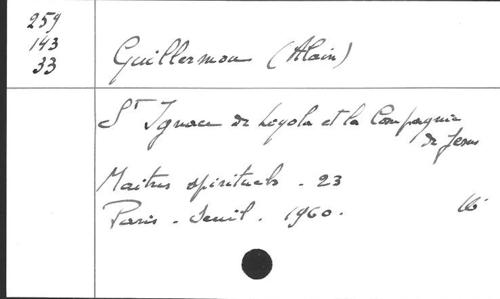 259
143
33
Guillermou (Alain)
St Ignace de Loyola et la Compagnie
de Jesus
Maitres spirituels - 23
Paris - Seuil - 1960.
16